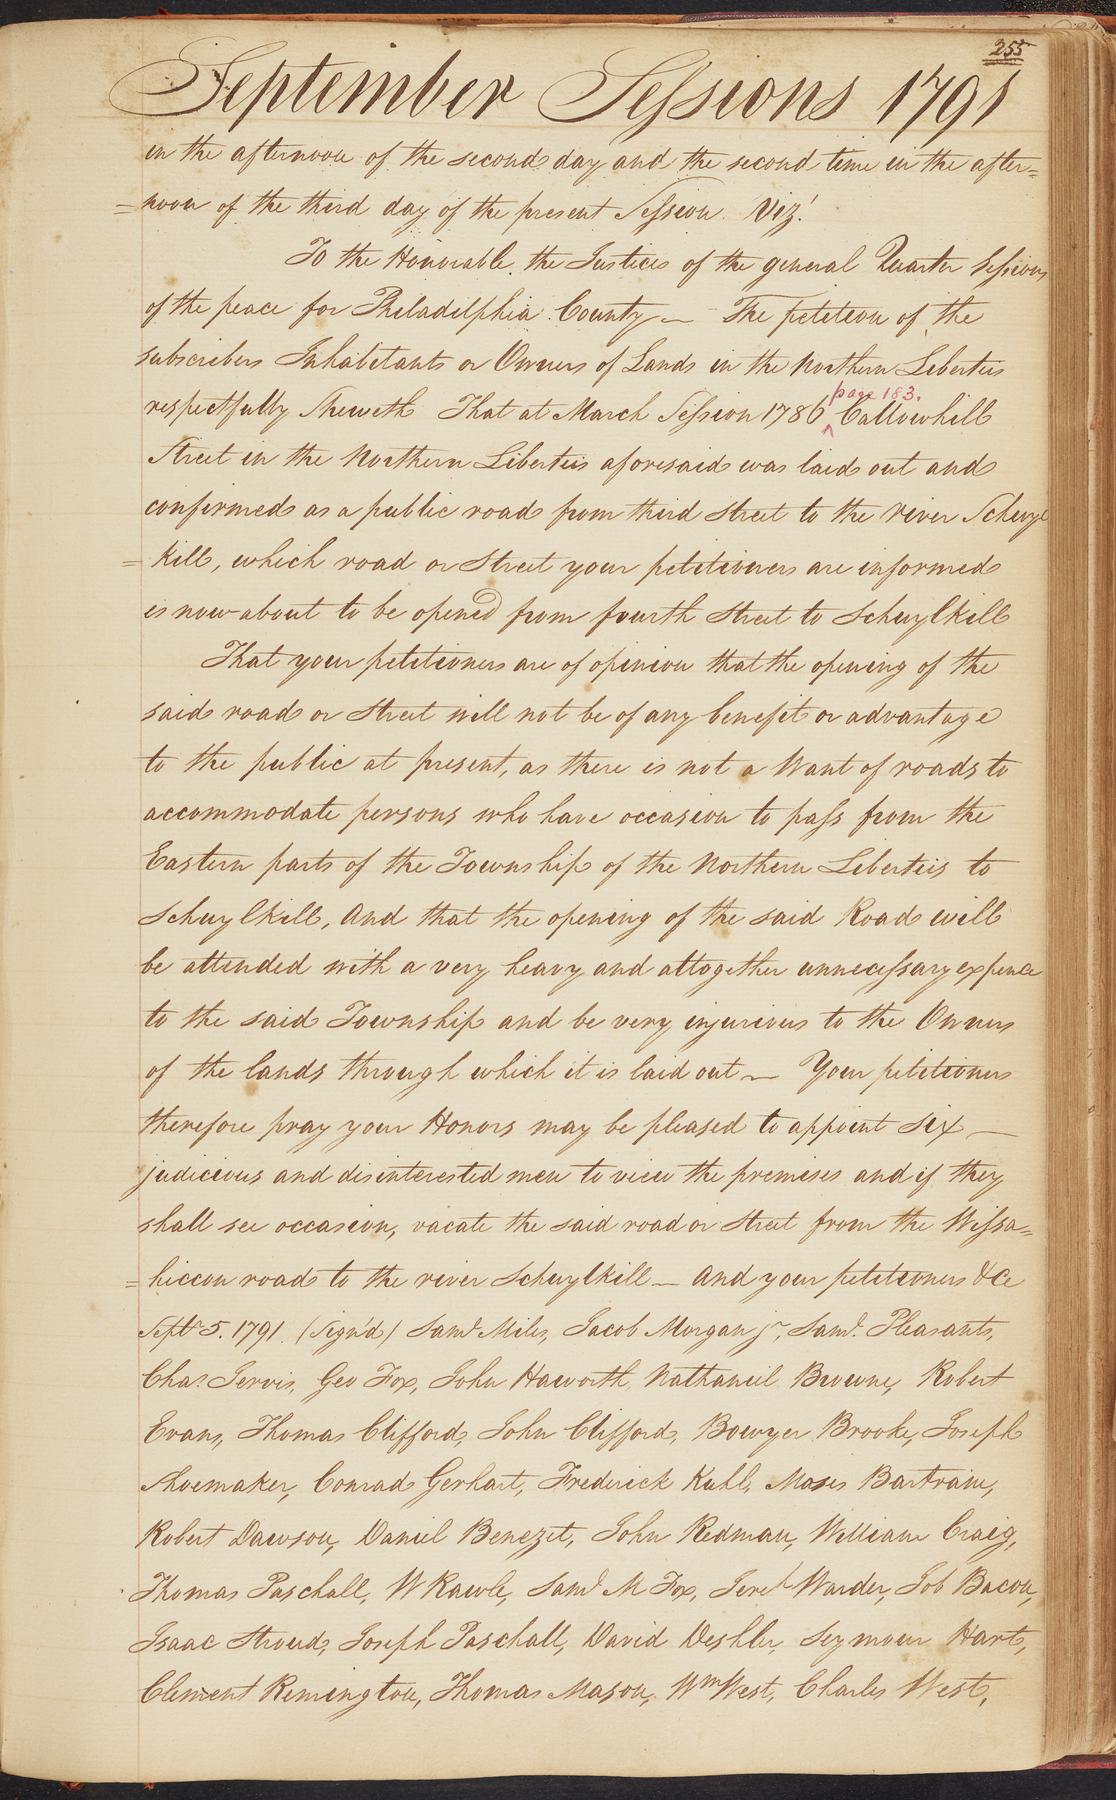 255
September Sessions 1791
in the afternoon of the second day and the second time in the after=
=noon of the third day of the present Session Viz.t
To the Honorable the Justices of the general Quarter Sessions
of the peace for Philadelphia County — The petition of the
subscribers Inhabitants or Owners of Lands in the Northern Liberties
page 183.
respectfully Sheweth That at March Session 1786 ^ Callowhill
Street in the Northern Liberties aforesaid was laid out and
confirmed as a public road from third Street to the river Schuyl
=kill, which road or Street your petitioners are informed
is now about to be opened from fourth Street to Schuylkill
That your petitioners are of opinion that the opening of the
said road or Street will not be of any benefit or advantage
to the public at present, as there is not a Want of roads to
accommodate persons who have occasion to pass from the
Eastern parts of the Township of the Northern Liberties to
Schuylkill, And that the opening of the said Road will
be attended with a very heavy and altogether unnecessary expence
to the said Township and be very injurious to the Owners
of the lands through which it is laid out — Your petitioners
therefore pray your Honors may be pleased to appoint six —
judicious and disinterested men to view the premises and if they
shall see occasion, vacate the said road or Street from the Wissa=
=hiccon road to the river Schuylkill — And your petitioners &c
Sept.r 5. 1791 (Sign'd) Sam.l Miles, Jacob Morgan j.r, Sam.l Pleasants,
Cha.s Jervis, Geo Fox, John Haworth, Nathaniel Browne, Robert
Evans, Thomas Clifford, John Clifford, Bowyer Brooke, Joseph
Shoemaker, Conrad Gerhart, Frederick Kuhl, Moses Bartram,
Robert Dawson, Daniel Benezet, John Redman, William Craig,
Thomas Paschall, W Rawle, Sam.l M Fox, Jere.h Warder, Job Bacon,
Isaac Stroud, Joseph Paschall, David Deshler, Seymour Hart,
Clement Remington, Thomas Mason, W.m West, Charles West,